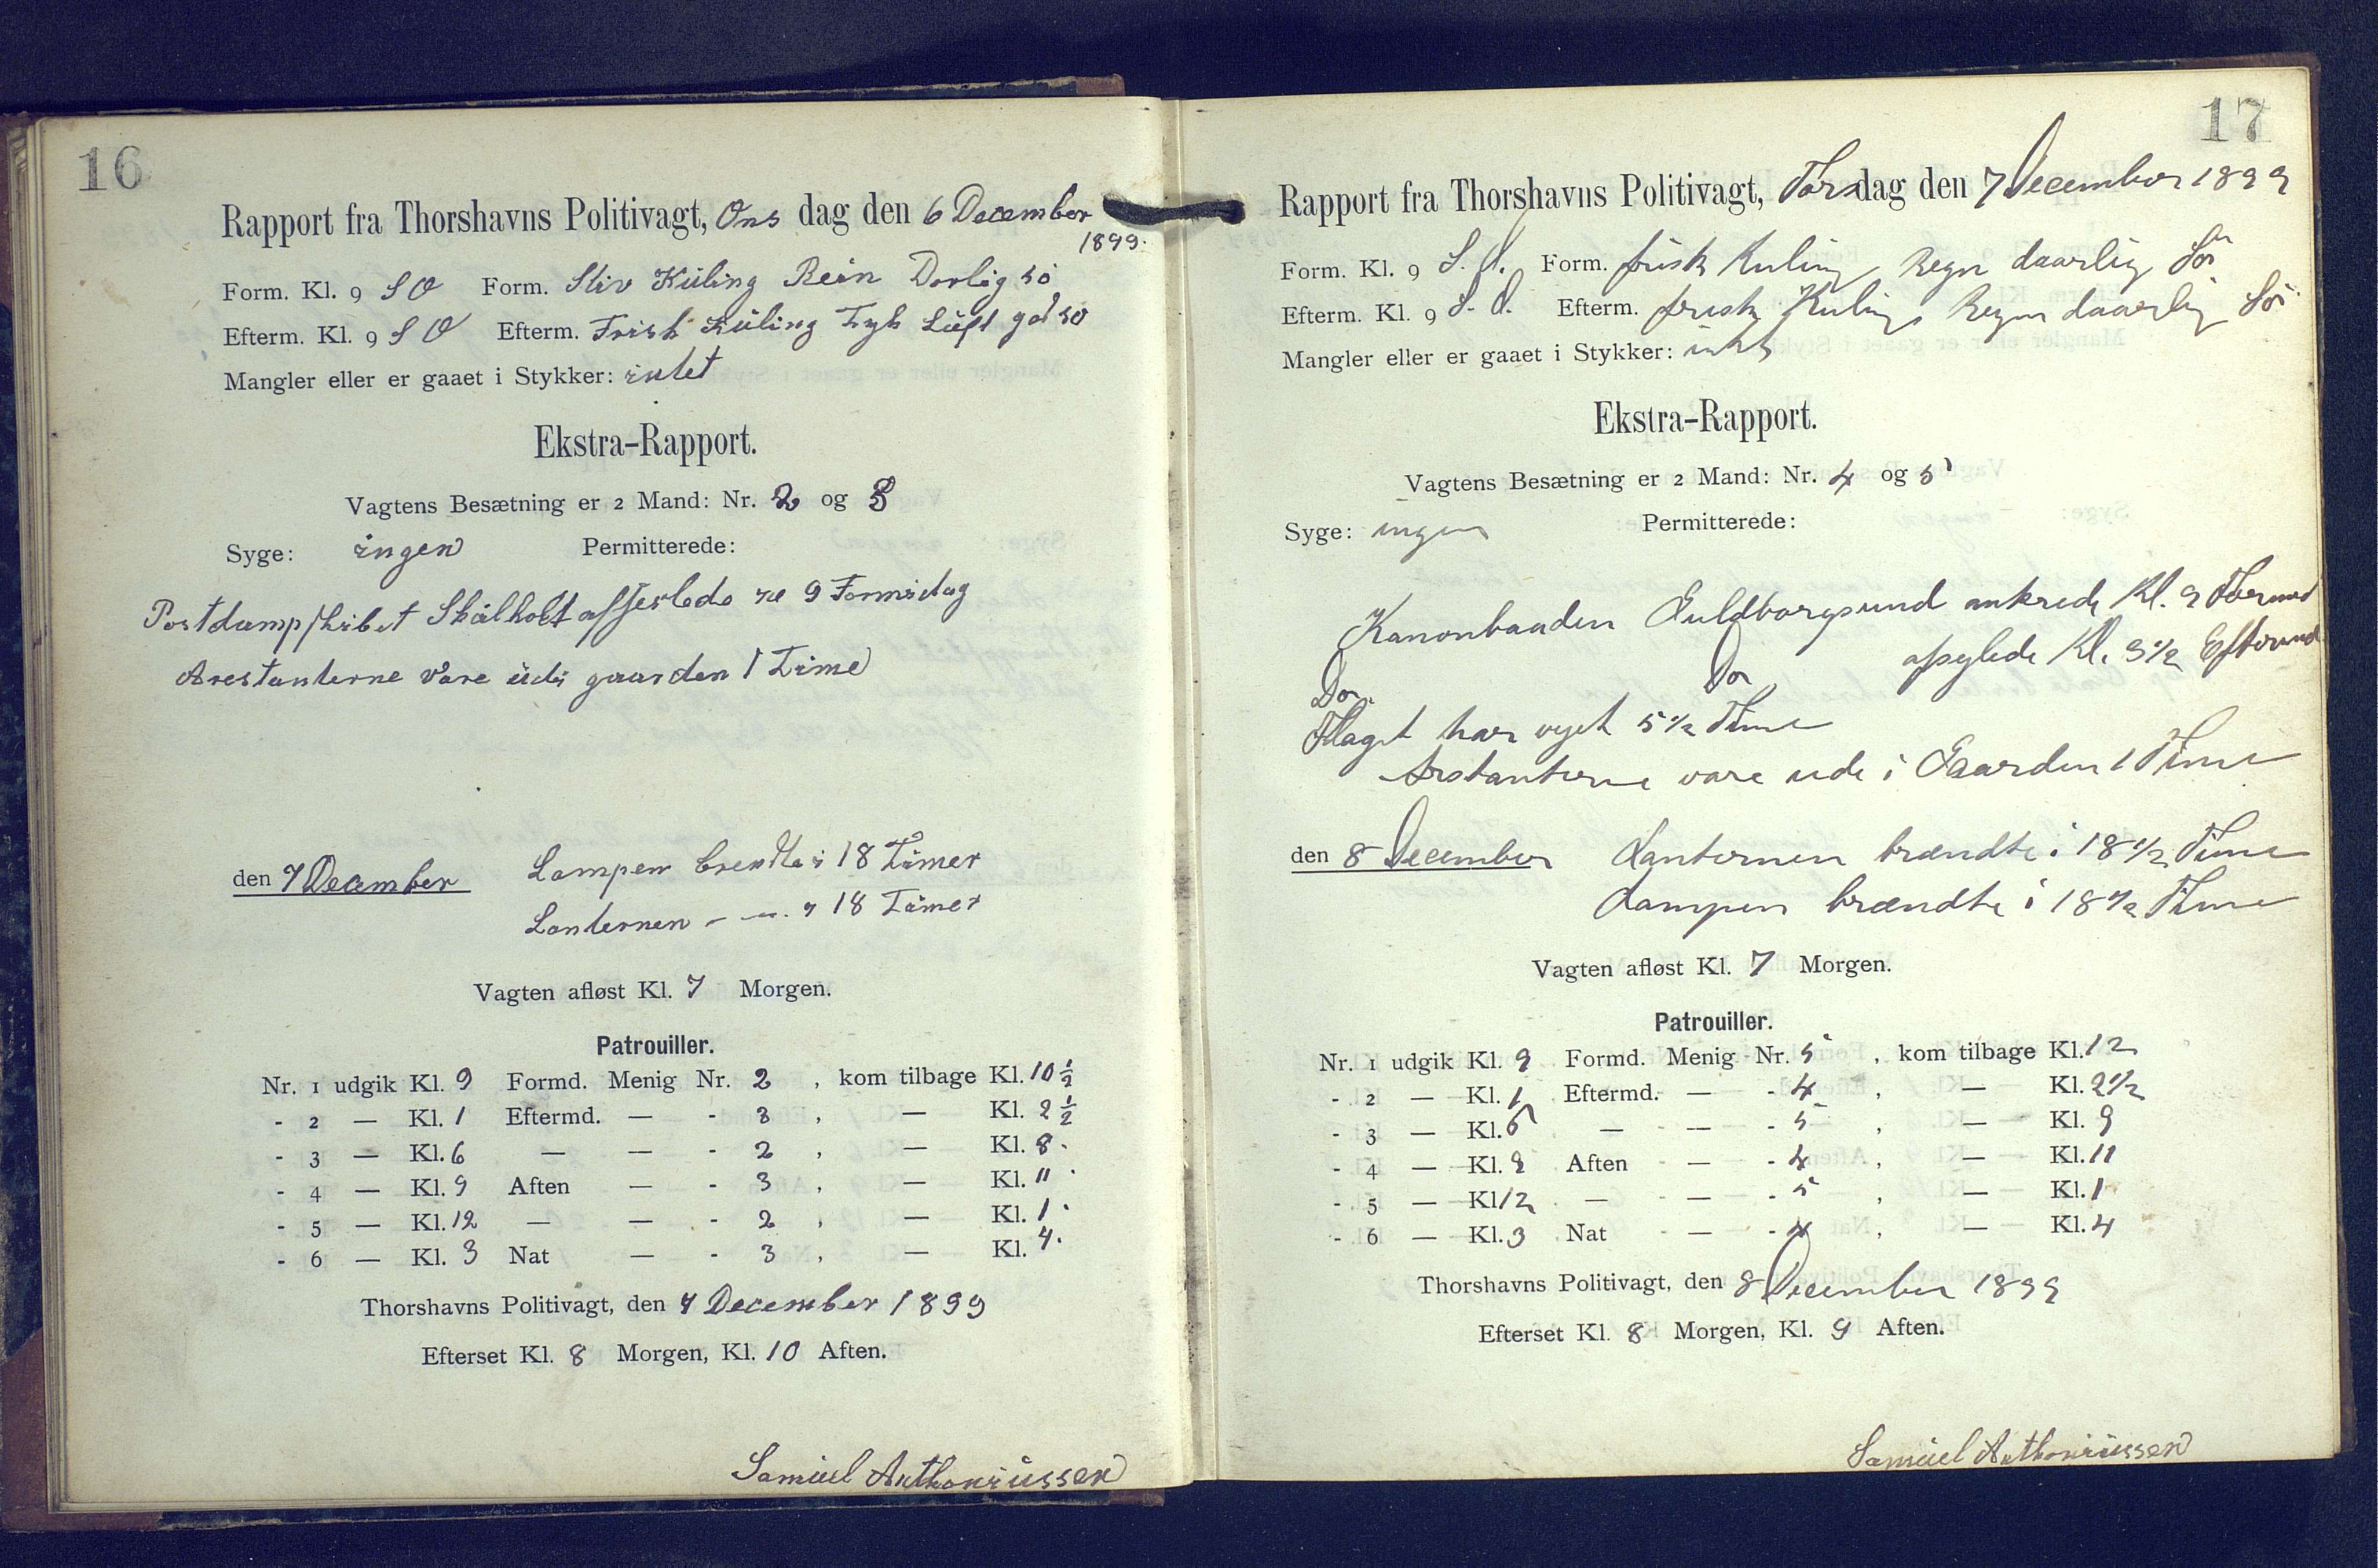 16
Rapport fra Thorshavns Politivagt, Ons dag den 6 December
1899.
Form. Kl. 9 S O Form. Stiv Küling Rein Dorlig sö
Efterm. Kl. 9 S O Efterm. Frisk Küling Tyk Lüft god sö
Mangler eller er gaaet i Stykker: intet
Ekstra-Rapport.
Vagtens Besætning er 2 Mand: Nr. 2 og 3
Syge: ingen Permitterede:
Postdampskibet Skalholt affeslede 9 Formidag
Arestanterne vare üdi gaarden 1 Time
den 7 December Lampen brendte i 18 Timer
Lanternen – – " 18 Timer
Vagten afløst Kl. 7 Morgen.
Patrouiller.
Nr. 1 udgik Kl. 9 Formd. Menig Nr. 2 , kom tilbage Kl. 10 ½
- 2 — Kl. 1 Eftermd. — - 3 , — Kl. 2 ½
- 3 — Kl. 6 — — - 2 , — Kl. 8.
- 4 — Kl. 9 Aften — - 3 , — Kl. 11.
- 5 — Kl. 12 — — - 2 , — Kl. 1.
- 6 — Kl. 3 Nat — - 3 , — Kl. 4.
Thorshavns Politivagt, den 7 December 1899
Efterset Kl. 8 Morgen, Kl. 10 Aften.
Samüel Anthoniüssen
17
Rapport fra Thorshavns Politivagt, Torsdag den 7 December 1899
Form. Kl. 9 S. O. Form. frisk Kuling Regn daarlig Sö
Efterm. Kl. 9 S. O. Efterm. frisk Kuling Regn daarlig Sö
Mangler eller er gaaet i Stykker: intet
Ekstra-Rapport.
Vagtens Besætning er 2 Mand: Nr. 4 og 5
Syge: ingen Permitterede:
Kanonbaaden Guldborgsund ankrede Kl. 9 Formd
Do Do afsejlede Kl. 3½ Eftermd
Flaget har vejet 5½ Time
Arstanterne vare ude i Gaarden 1 Time
den 8 December Lanternen brændte i 18½ Time
Lampen brændte i 18½ Time
Vagten afløst Kl. 7 Morgen.
Patrouiller.
Nr. 1 udgik Kl. 9 Formd. Menig Nr. 5 , kom tilbage Kl. 12
- 2 — Kl. 1 Eftermd. — - 4 , — Kl. 2½
- 3 — Kl. 6 — — - 5 , — Kl. 9
- 4 — Kl. 9 Aften — - 4 , — Kl. 11
- 5 — Kl 12 — — - 5 , — Kl. 1
- 6 — Kl. 3 Nat — - 4 , — Kl. 4
Thorshavns Politivagt, den 8 December 1899
Efterset Kl. 8 Morgen, Kl. 9 Aften.
Samüel Anthoniüssen